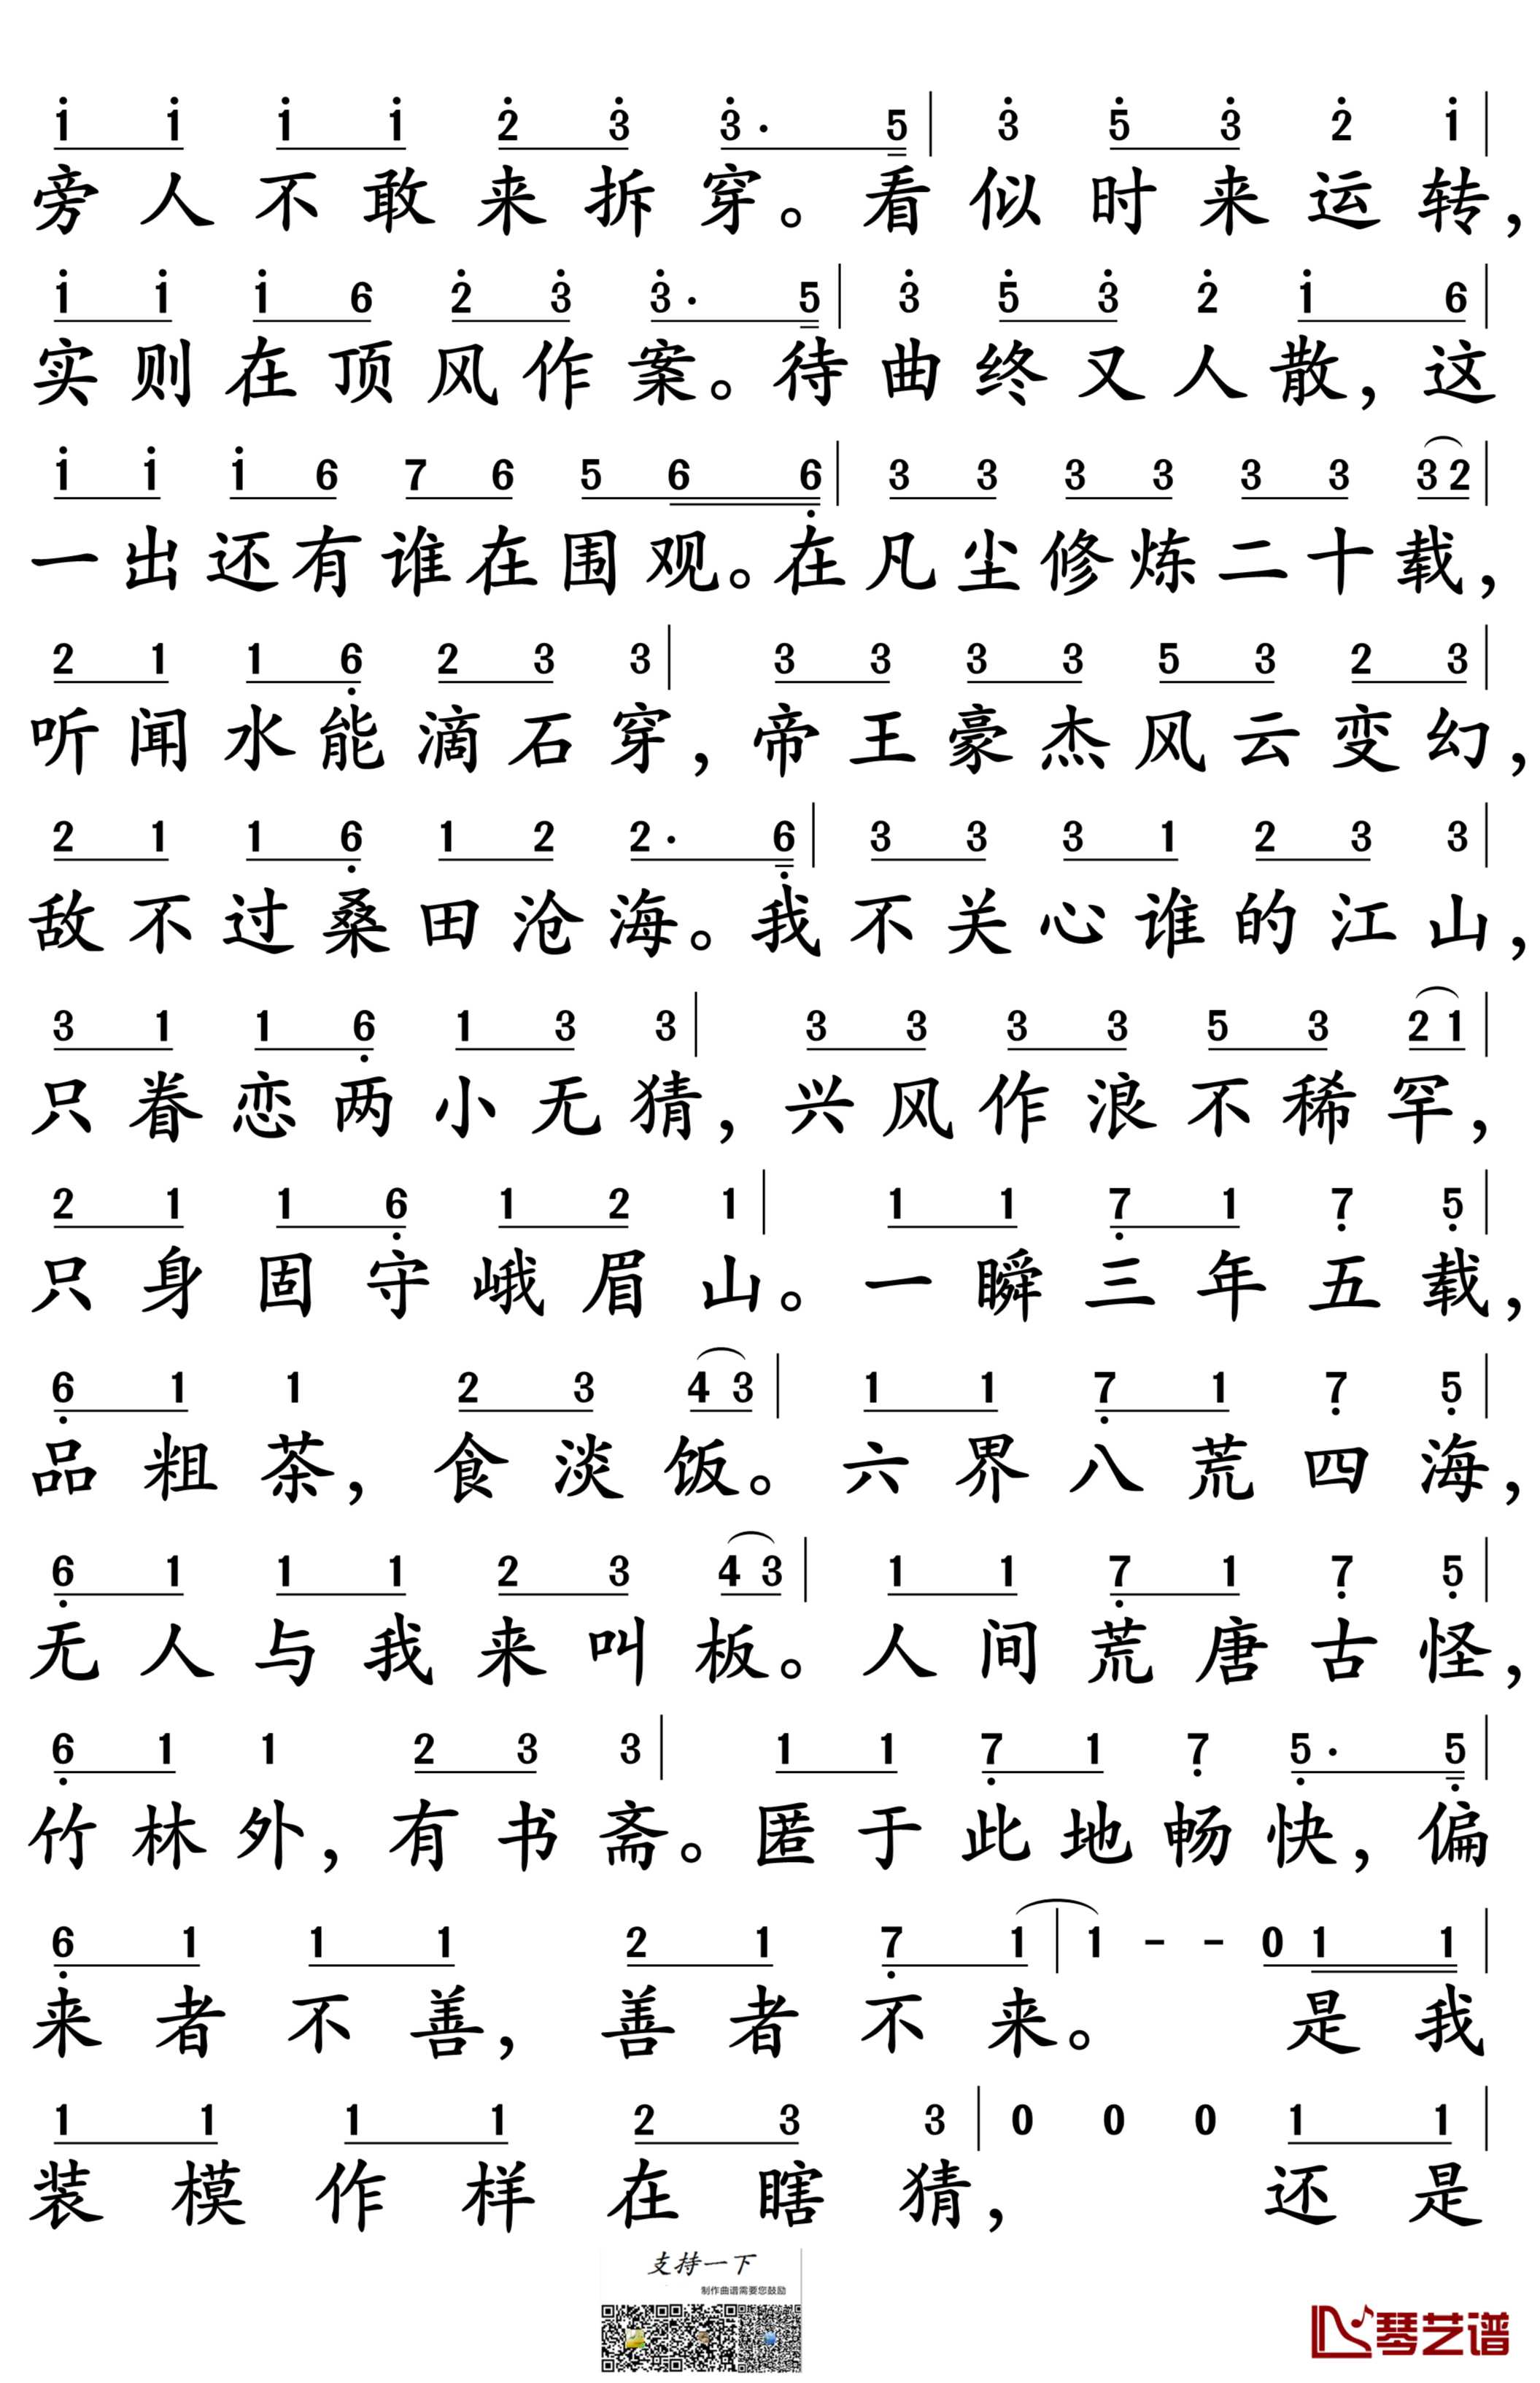 1̇ 1̇ 1̇ 1̇ 2̇ 3̇ 3̇· 5̇ | 3̇ 5̇ 3̇ 2̇ 1̇ |
旁人不敢来拆穿。看似时来运转，
1̇ 1̇ 1̇ 6 2̇ 3̇ 3̇· 5 | 3̇ 5̇ 3̇ 2̇ 1̇ 6 |
实则在顶风作案。待曲终又人散，这
1̇ 1̇ 1̇ 6 7 6 5 6 6̣ | 3 3 3 3 3 3 3 2 |
一出还有谁在围观。在凡尘修炼二十载，
2 1 1 6̣ 2 3 3 | 3 3 3 3 5 3 2 3 |
听闻水能滴石穿，帝王豪杰风云变幻，
2 1 1 6̣ 1 2 2· 6̣ | 3 3 3 1 2 3 3 |
敌不过桑田沧海。我不关心谁的江山，
3 1 1 6̣ 1 3 3 | 3 3 3 3 5 3 2 1 |
只眷恋两小无猜，兴风作浪不稀罕，
2 1 1 6̣ 1 2 1 | 1 1 7̣ 1 7̣ 5̣ |
只身固守峨眉山。一瞬三年五载，
6̣ 1 1 2 3 4 3 | 1 1 7̣ 1 7̣ 5̣ |
品粗茶，食淡饭。六界八荒四海，
6̣ 1 1 1 2 3 4 3 | 1 1 7̣ 1 7̣ 5̣ |
无人与我来叫板。人间荒唐古怪，
6̣ 1 1 2 3 3 | 1 1 7̣ 1 7̣ 5̣· 5̣ |
竹林外，有书斋。匿于此地畅快，偏
6̣ 1 1 1 2 1 7̣ 1 | 1 - - 0 1 1 |
来者不善，善者不来。是我
1 1 1 1 2 3 3 | 0 0 0 1 1 |
装模作样在瞎猜，还是
支持一下
制作曲谱需要您鼓励
琴艺谱